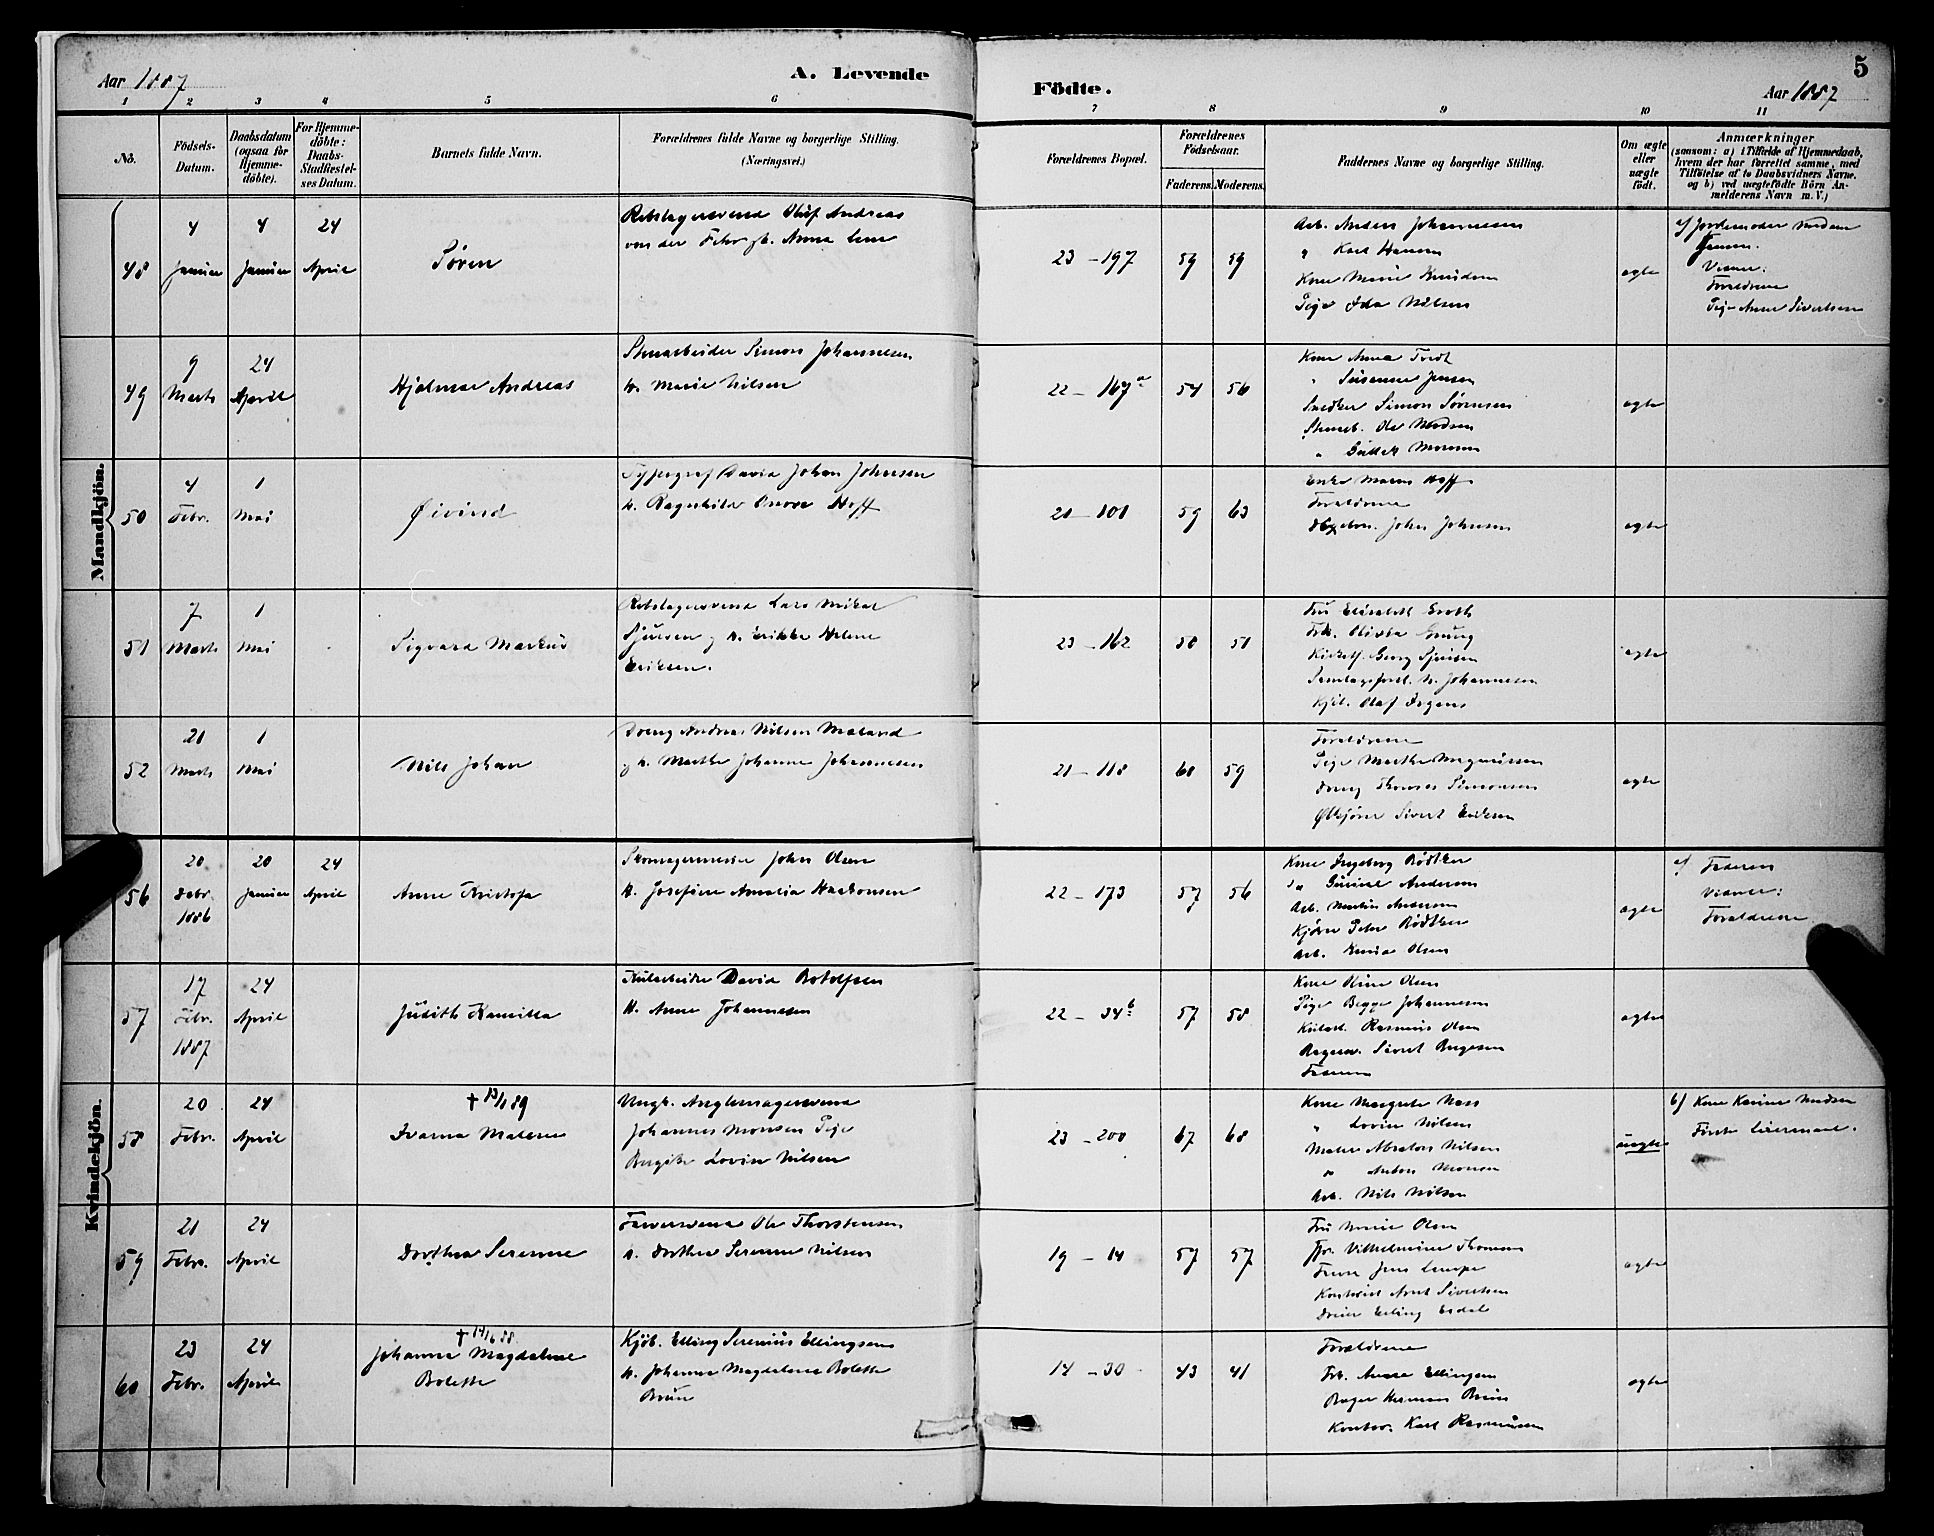 Aar 1887
A. Levende
Födte.
Aar 1887
5
1 2 3 4 5 6 7 8 9 10 11
No.
Födsels-
Datum.
Daabsdatum
(ogsaa for
Hjemme-
döbte).
For Hjemme-
döbte:
Daabs-
Stadfæstel-
ses Datum.
Barnets fulde Navn.
Forældrenes fulde Navne og borgerlige Stilling.
(Næringsvei.)
Forældrenes Bopæl.
Forældrenes
Födselsaar.
Faderens. Moderens.
Faddernes Navne og borgerlige Stilling.
Om ægte
eller
uægte
födt.
Anmærkninger
(saasom: a) i Tilfælde af Hjemmedaab,
hvem der har forrettet samme, med
Tilföielse af to Daabsvidners Navne.
og b) ved uægtefödte Börn An-
melderens Navn m. V.)
Mandkjön.
48
4 Januar
4 Januar
24 April
Sören
Rebslagersvend Oluf Andreas
von der Fehr
23 - 197
59 59
Arb. Anders Johannessen
" Karl Hansen
Kone Marie Knudsen
Pige Ida Nilsen
ægte
a) Jordemoder Madsen
Vidner:
Forældrene
Pige Anne Sivertsen
49
9 Marts
24 April
Hjalmar Andreas
Stenarbeider Simon Johannesen
H. Marie Nilsen
22 - 167a
54 56
Kone Anna Tvedt
" Susanne Jensen
Snedker Simon Sörensen
Stenarb. Ole Madsen
" Monsen
ægte
50
4 Febr.
1 Mai
Øivind
Typograf David Johan Johnsen
H. Ragnhilda Hoff
21 - 101
59 63
Enke Maren Hoff
Forældrene
John Johnsen
ægte
51
7 Marts
1 Mai
Sigvard Markus
Rebslagersvend Lars Mikal
Sjursen og H. Erikka Helene
Eriksen.
23 - 162
50 51
Fru Elisabeth Groth
Frk. Olivia Grung
Georg Sjursen
Johannesen
Kjöb. Olaf Irgens
ægte
52
21 Marts
1 Mai
Nils Johan
Dreng Andreas Nilsen Maland
og H. Marthe Johanne Johannesen
21 - 118
60 59
Forældrene
Pige Marthe Magnussen
Dreng Thomas Simonsen
Sivert Eriksen
ægte
Kvindekjön.
56
20 Debr. 1886
20 Januar
24 April
Anne Kristofa
Skomagermester John Olsen
H. Josefine Amalia Haakonsen
22 - 173
57 56
Kone Ingeborg Bödtker
" Gurine Andersen
Arb. Martin Andersen
Peder Bödtker
Arb. Olsen
ægte
a) Faderen
Vidner:
Forældrene
57
17 Febr. 1887
24 April
Judith Kamilla
Kularbeider David Botolfsen
H. Anne Johannesen
22 - 34b
57 58
Kone Oline Olsen
Pige Begga Johannesen
Rasmus Olsen
Sivert Bugesen
Faderen
ægte
58
20 Febr.
24 April
† 13/1 89
Ivarna Malene
Ungk. Anglemagersvend
Johannes Monsen Pige
Birgitte Lovise Nilsen
23 - 200
67 68
Kone Margrete Næss
" Lovise Nilsen
Maler Abraham Nilsen
" Anton Monsen
Arb. Nils Nilsen
uægte
b) Kone Karine Madsen
Förste Leiermaal.
59
21 Febr.
24 April
Dorthea Serenne
Farversvend Ole Thorstensen
H. Dorthea Serenne Nilsen
19 - 14
57 57
Fru Marie Olsen
Vilhelmine Thomsen
Jens
Kontorist Arnt Sivertsen
Dreier Elling Eidal
ægte
60
23 Febr.
24 April
† 14/6 88.
Johanna Magdalene
Bolette
Kjöb. Elling Serenius Ellingsen
H. Johanna Magdalena Bolette
Brun
14 - 30
43 41
Forældrene
Frk. Anna Ellingsen
Bager Herman Brun
Kontor. Karl Rasmussen
ægte